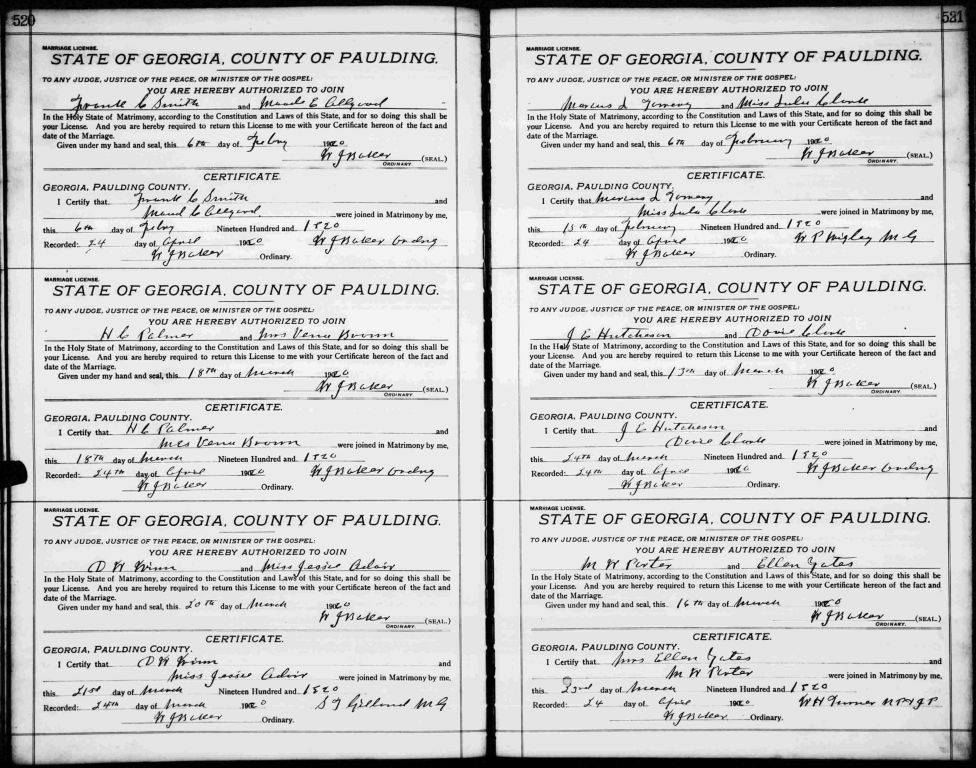 520
MARRIAGE LICENSE.
STATE OF GEORGIA, COUNTY OF PAULDING.
TO ANY JUDGE, JUSTICE OF THE PEACE, OR MINISTER OF THE GOSPEL:
YOU ARE HEREBY AUTHORIZED TO JOIN
Frank C Smith and Maude E Allgood
In the Holy State of Matrimony, according to the Constitution and Laws of this State, and for so doing this shall be
your License. And you are hereby required to return this License to me with your Certificate hereon of the fact and
date of the Marriage.
Given under my hand and seal, this 6th day of Febry 1920
W J Baker (SEAL.)
ORDINARY.
CERTIFICATE.
GEORGIA, PAULDING COUNTY.
I Certify that Frank C Smith and
Maud C Allgood were joined in Matrimony by me,
this 6th day of Febry Nineteen Hundred and 1920
Recorded: 24 day of April 1920 W J Baker Ordny
W J Baker Ordinary.
MARRIAGE LICENSE.
STATE OF GEORGIA, COUNTY OF PAULDING.
TO ANY JUDGE, JUSTICE OF THE PEACE, OR MINISTER OF THE GOSPEL:
YOU ARE HEREBY AUTHORIZED TO JOIN
H C Palmer and Mrs Venu Brown
In the Holy State of Matrimony, according to the Constitution and Laws of this State, and for so doing this shall be
your License. And you are hereby required to return this License to me with your Certificate hereon of the fact and
date of the Marriage.
Given under my hand and seal, this 18th day of March 1920
W J Baker (SEAL.)
ORDINARY.
CERTIFICATE.
GEORGIA, PAULDING COUNTY.
I Certify that H C Palmer and
Mrs Venu Brown were joined in Matrimony by me,
this 18th day of March Nineteen Hundred and 1920
Recorded: 24th day of April 1920 W J Baker Ordng
W J Baker Ordinary.
MARRIAGE LICENSE.
STATE OF GEORGIA, COUNTY OF PAULDING.
TO ANY JUDGE, JUSTICE OF THE PEACE, OR MINISTER OF THE GOSPEL:
YOU ARE HEREBY AUTHORIZED TO JOIN
D W Winn and Miss Jessie Adair
In the Holy State of Matrimony, according to the Constitution and Laws of this State, and for so doing this shall be
your License. And you are hereby required to return this License to me with your Certificate hereon of the fact and
date of the Marriage.
Given under my hand and seal, this 20th day of March 1920
W J Baker (SEAL.)
ORDINARY.
CERTIFICATE.
GEORGIA, PAULDING COUNTY.
I Certify that D W Winn and
Miss Jessie Adair were joined in Matrimony by me,
this 21st day of March Nineteen Hundred and 1920
Recorded: 24th day of March 1920 M G
W J Baker Ordinary.
521
MARRIAGE LICENSE.
STATE OF GEORGIA, COUNTY OF PAULDING.
TO ANY JUDGE, JUSTICE OF THE PEACE, OR MINISTER OF THE GOSPEL:
YOU ARE HEREBY AUTHORIZED TO JOIN
Marcus L and Miss Lula Clonts
In the Holy State of Matrimony, according to the Constitution and Laws of this State, and for so doing this shall be
your License. And you are hereby required to return this License to me with your Certificate hereon of the fact and
date of the Marriage.
Given under my hand and seal, this 6th day of February 1920
W J Baker (SEAL.)
ORDINARY.
CERTIFICATE.
GEORGIA, PAULDING COUNTY.
I Certify that Marcus L and
Miss Lula Clonts were joined in Matrimony by me,
this 15th day of February Nineteen Hundred and 1920
Recorded: 24 day of April 1920 W P Wigley M G
W J Baker Ordinary.
MARRIAGE LICENSE.
STATE OF GEORGIA, COUNTY OF PAULDING.
TO ANY JUDGE, JUSTICE OF THE PEACE, OR MINISTER OF THE GOSPEL:
YOU ARE HEREBY AUTHORIZED TO JOIN
J E Hutcheson and Dovie Clonts
In the Holy State of Matrimony, according to the Constitution and Laws of this State, and for so doing this shall be
your License. And you are hereby required to return this License to me with your Certificate hereon of the fact and
date of the Marriage.
Given under my hand and seal, this 13th day of March 1920
W J Baker (SEAL.)
ORDINARY.
CERTIFICATE.
GEORGIA, PAULDING COUNTY.
I Certify that J E Hutcheson and
Dovie Clonts were joined in Matrimony by me,
this 24th day of March Nineteen Hundred and 1920
Recorded: 24th day of April 1920 W J Baker Ordny
W J Baker Ordinary.
MARRIAGE LICENSE.
STATE OF GEORGIA, COUNTY OF PAULDING.
TO ANY JUDGE, JUSTICE OF THE PEACE, OR MINISTER OF THE GOSPEL:
YOU ARE HEREBY AUTHORIZED TO JOIN
M W Porter and Ellen Yates
In the Holy State of Matrimony, according to the Constitution and Laws of this State, and for so doing this shall be
your License. And you are hereby required to return this License to me with your Certificate hereon of the fact and
date of the Marriage.
Given under my hand and seal, this 16th day of March 1920
W J Baker (SEAL.)
ORDINARY.
CERTIFICATE.
GEORGIA, PAULDING COUNTY.
I Certify that Mrs Ellen Yates and
M W Porter were joined in Matrimony by me,
this 23rd day of March Nineteen Hundred and 1920
Recorded: 24 day of April 1920 W H Turner N P & J P
W J Baker Ordinary.